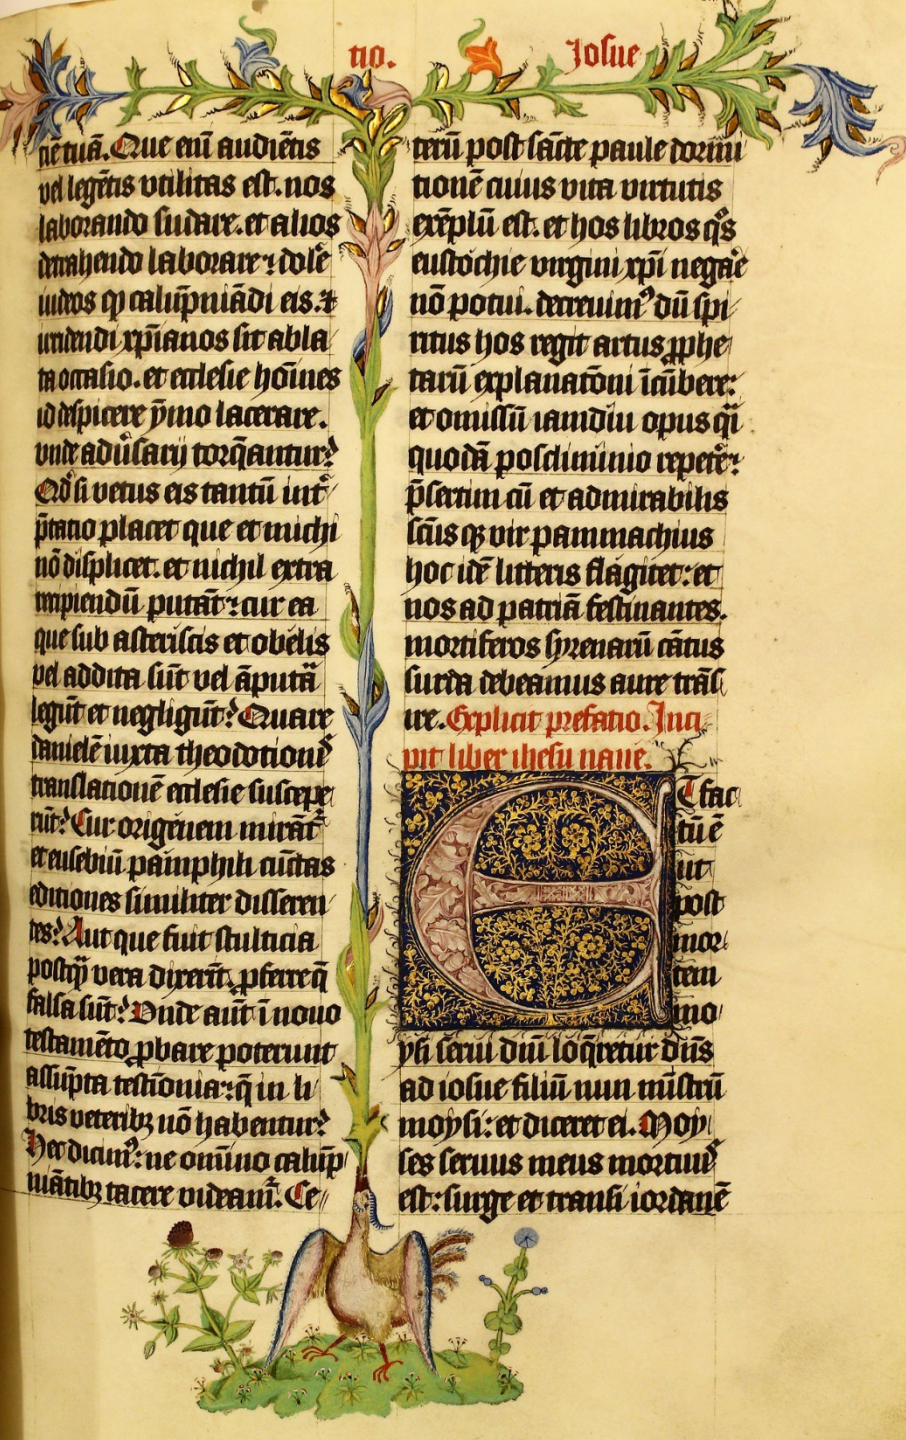 tio. Iosue
tiẽ tuã. Que eni͂ audiẽtis
vel legẽtis vtilitas est. nos
laborando sudare. et alios
detrahendo laborare ⁊ dolẽ
iudeos qp calũpniãdi eis. ⁊
irridendi xp̃ianos sit abla
ta occasio. et ecclesie hoĩnes
id despicere ymo lacerare.
vnde adũsarij torq̃antur?
Qď si vetus eis tantũ int̃
p̃tatio placet que et michi
nõ displicet. et nichil extra
recipiendũ putãt: cur ea
que sub asteriscis et obelis
vel addita sũt vel ãputãa
legũt et negligũt? Quare
danielẽ iuxta theodotionẽ
translationẽ ecclesie suscepe
rũt? Cur origenem mirãt᷑
et eusebiũ pamphili cũctas
editiones similiter disseren
tes? Aut que fuit stulticia
postq̃ vera dixerĩt, ꝓferre q̃
falsa sũt? Vnde aũt ĩ nouo
testamẽto ꝓbare poterunt
assũpta testĩonia: q̃ in li
bris veteribꝫ nõ habentur?
Hec dicim᷒: ne omĩno calũp
niãtibꝫ tacere videam᷑. Ce
terũ post sãcte paule dormi
tionẽ cuius vita virtutis
exẽplũ est. et hos libros q᷒s
eustochie virgini xp̃i negar̃e
nõ potui. decreuim᷒ dũ spi
ritus hos regit artus ꝓphe
tarũ explanatõni ĩcũbere:
et omissũ iamdiu opus q̃i
quodã postliminio repeter̃e:
p̃sertim cũ et admirabilis
sctũs qꝫ vir pammachius
hoc idẽ litteris flagitet: et
nos ad patriã festinantes.
mortiferos syrenarũ cãtus
surda debeamus aure trãs
ire. Explicit prefatio. Inci
pit liber ihesu naue.
ET fac
tũ ẽ
ut
post
mor
tem
mo
ysi serui dñi lõq̃retur dñs
ad iosue filiũ nun mĩstrũ
moysi: et diceret ei. Moy
ses seruus meus mortuus
est: surge et transi iordanẽ